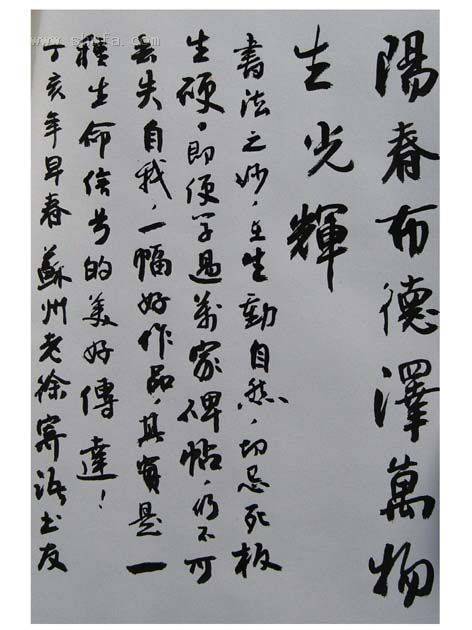 陽春布德澤萬物
生光輝
書法之妙，在生動自然，切忌死板
生硬，即便学過萬家碑帖，仍不可
丢失自我，一幅好作品，其實是一
種生命信号的美好傳達！
丁亥年早春 蘇州老徐寄语书友